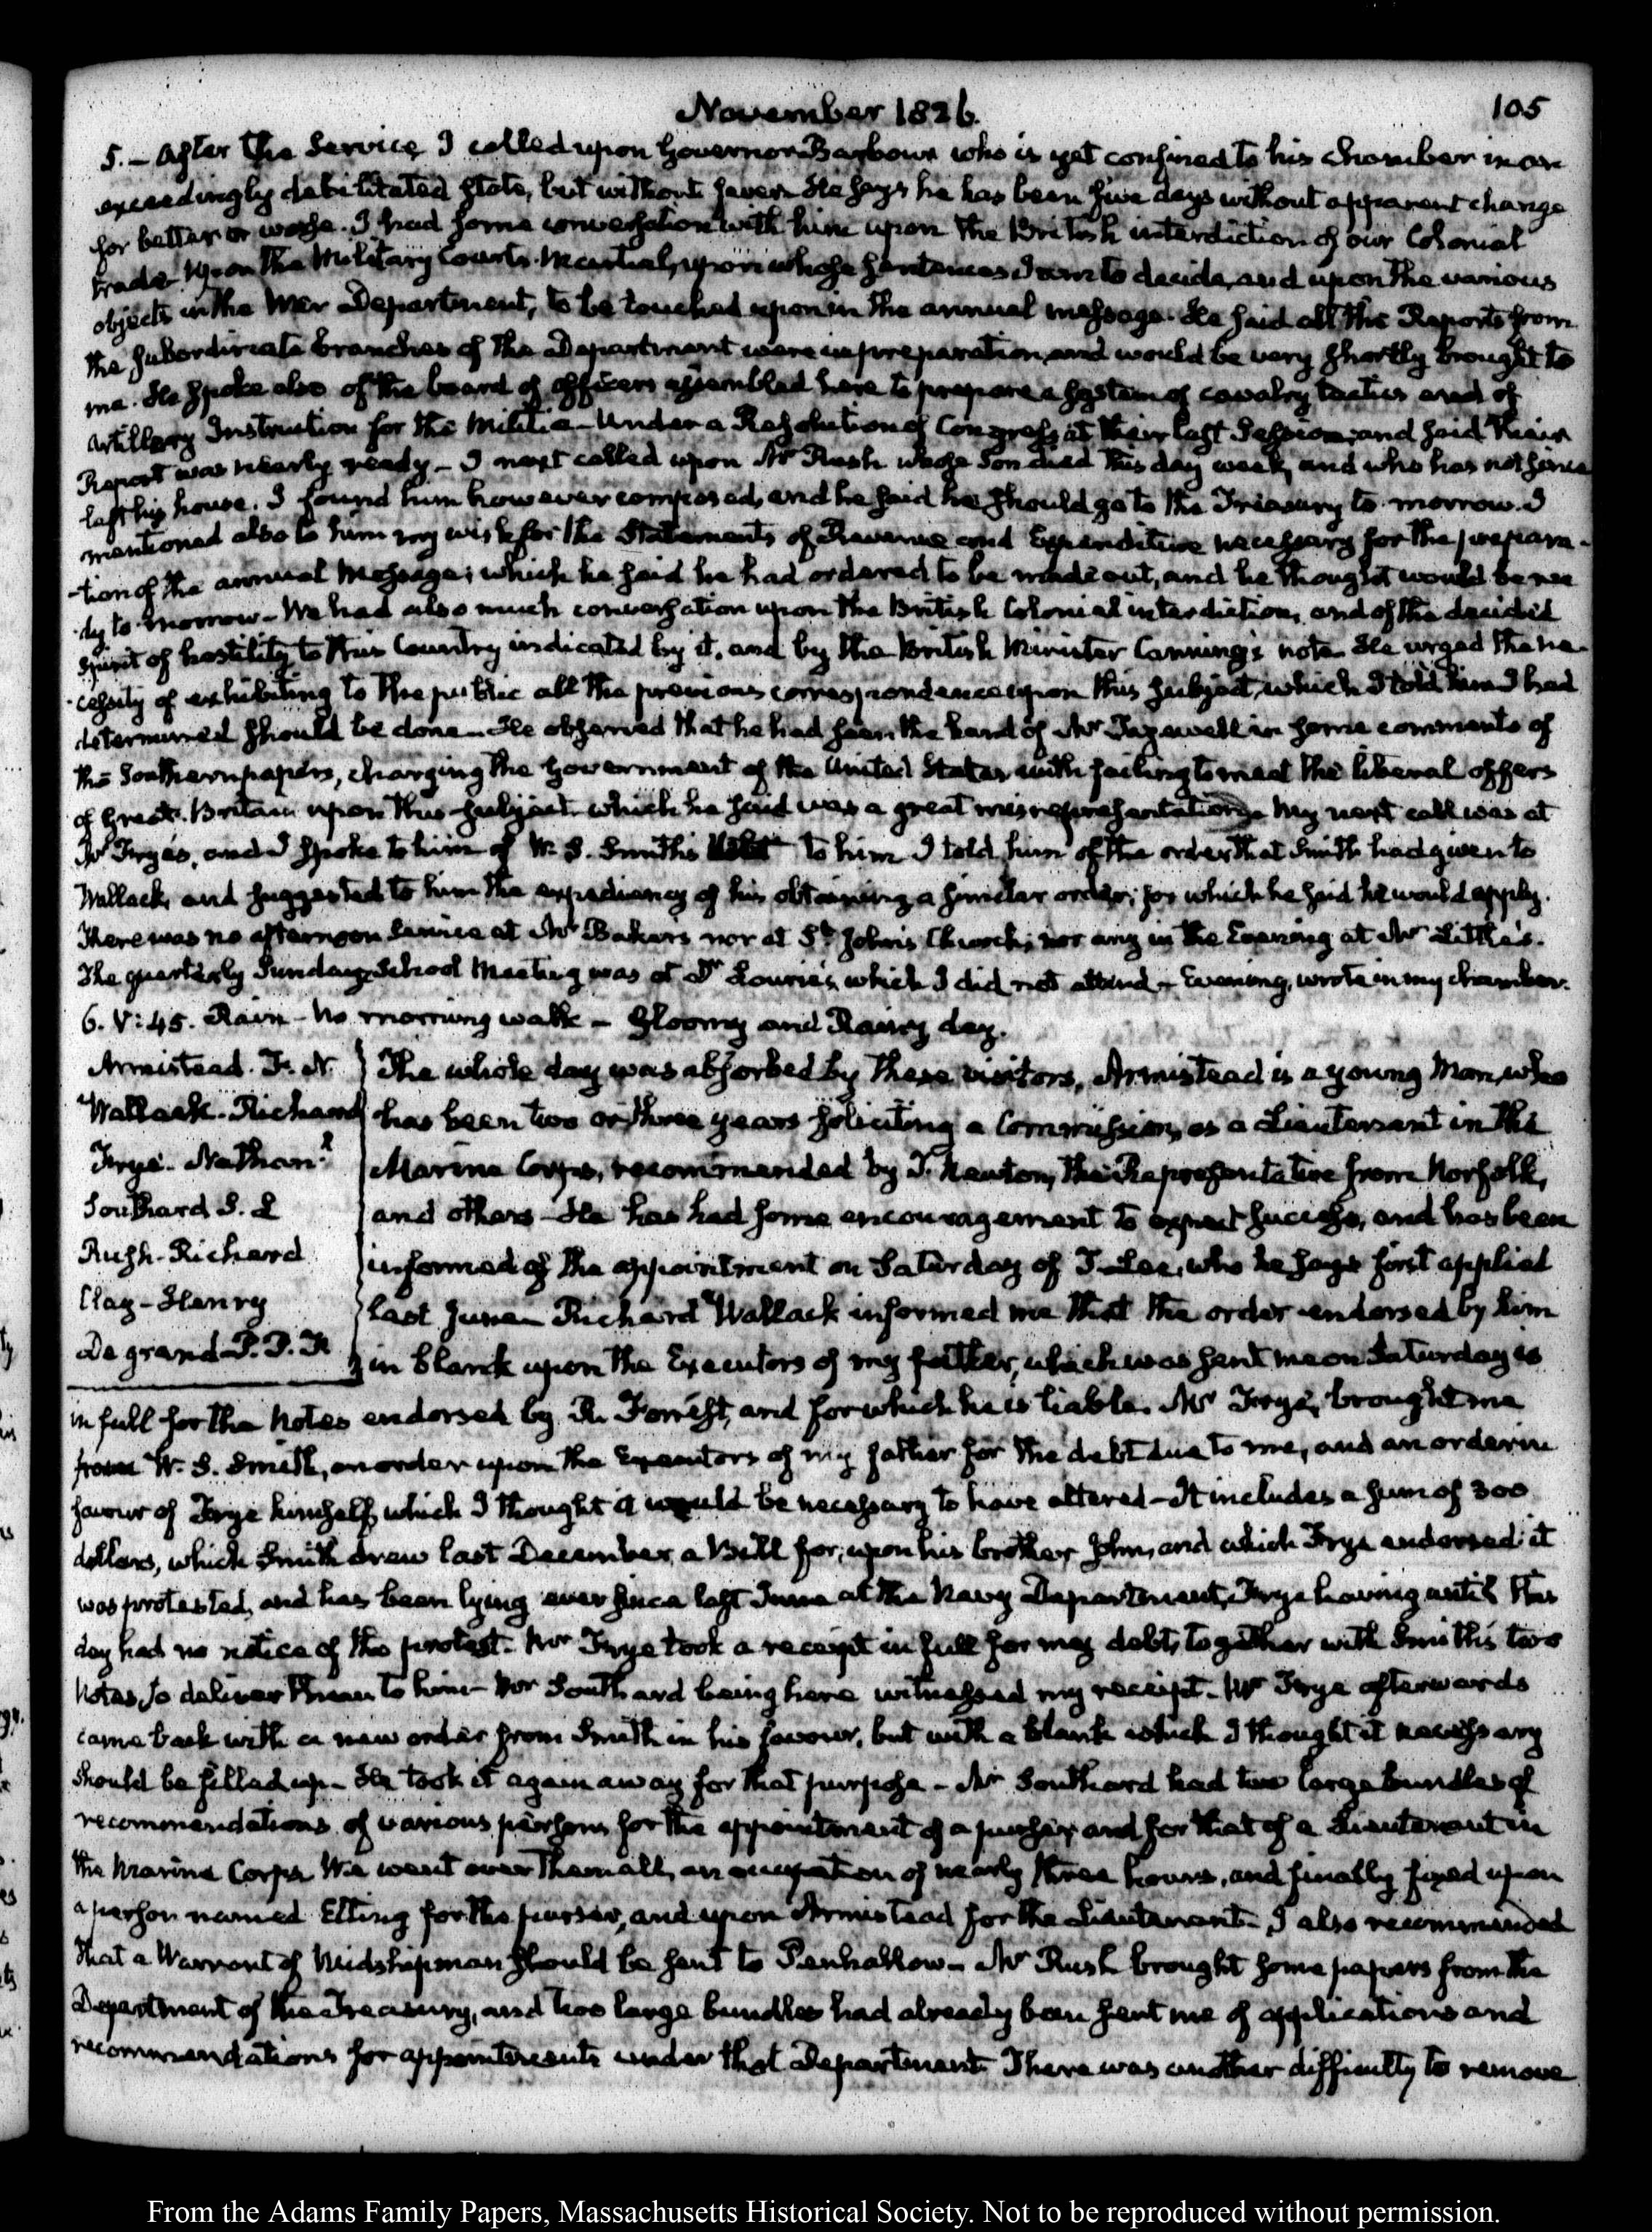 November 1826.
105
5. – After the Service I called upon Governor Barbour who is yet confined to his chamber in an
exceedingly debilitated state, but without fever. He says he has been five days without apparent change
for better or worse. I had some conversation with him upon the British interdiction of our Colonial
trade. Upon the Military Courts-Martial, upon whose sentences I am to decide, and upon the various
objects in the War Department, to be touched upon in the annual message. He said all the Reports from
the subordinate branches of the Department were in preparation, and would be very shortly brought to
me. He spoke also of the board of officers assembled here to prepare a system of cavalry tactics and of
Artillery Instruction for the Militia – Under a Resolution of Congress at their last Session, and said their
Report was nearly ready – I next called upon Mr Rush whose Son died this day week, and who has not since
left his house. I found him however composed, and he said he should go to the Treasury to-morrow. I
mentioned also to him my wish for the Statements of Revenue and Expenditure necessary for the prepara-
-tion of the annual Message; which he said he had ordered to be made out, and he thought would be rea
dy to-morrow – We had also much conversation upon the British Colonial interdiction, and of the decided
spirit of hostility to this Country indicated by it, and by the British Minister Canning's note. He urged the ne-
-cessity of exhibiting to the public all the previous correspondence upon this subject, which I told him I had
determined should be done – He observed that he had seen the hand of Mr Tazewell in some comments of
the Southern papers, charging the Government of the United States with failing to meet the liberal offers
of Great-Britain upon this subject which he said was a great misrepresentation. My next call was at
Mr Frye's, and I spoke to him of W. S. Smith's to him I told him of the order that Smith had given to
Wallack, and suggested to him the expediency of his obtaining a similar order; for which he said he would apply.
There was no afternoon Service at Mr Baker's nor at St. John's Church; nor any in the Evening at Mr Little's.
The quarterly Sunday School Meeting was at Dr Laurie's, which I did not attend – Evening, wrote in my chamber.
6. V:45. Rain – No morning walk – Gloomy and Rainy day.
Armistead. F. N.
Wallack. Richard
Frye. Nathanl
Southard S. L
Rush. Richard
Clay – Henry
Degrand. P. P. F
The whole day was absorbed by these visitors, Armistead is a young Man, who
has been two or three years soliciting a Commission, as a Lieutenant in the
Marine Corps, recommended by T. Newton, the Representative from Norfolk,
and others – He has had some encouragement to expect success, and has been
informed of the appointment on Saturday of T. Lee, who he says first applied
last June – Richard Wallack informed me that the order endorsed by him
in blank upon the Executors of my father, which was sent me on Saturday is
in full for the Notes endorsed by R. Forrest, and for which he is liable. Mr Frye, brought me
from W. S. Smith, an order upon the Executors of my father for the debt due to me, and an order in
favour of Frye himself, which I thought it would be necessary to have altered – It includes a sum of 300
dollars, which Smith drew last December, a Bill for, upon his brother John, and which Frye endorsed. it
was protested, and has been lying ever since last June at the Navy Department, Frye having until this
day had no notice of the protest. Mr Frye took a receipt in full for my debt, together with Smith's two
Notes, to deliver them to him – Mr Southard being here witnessed my receipt. Mr Frye afterwards
came back with a new order from Smith in his favour, but with a blank which I thought it necessary
should be filled up – He took it again away for that purpose – Mr Southard had two large bundles of
recommendations of various persons for the appointment of a purser, and for that of a Lieutenant in
the Marine Corps. We went over them all, an occupation of nearly three hours, and finally fixed upon
a person named Etting for the purser, and upon Armistead for the Lieutenant. I also recommended
that a Warrant of Midshipman should be sent to Penhallow – Mr Rush brought some papers from the
Department of the Treasury, and two large bundles had already been sent me of applications and
recommendations for appointments under that Department. There was another difficulty to remove
From the Adams Family Papers, Massachusetts Historical Society. Not to be reproduced without permission.